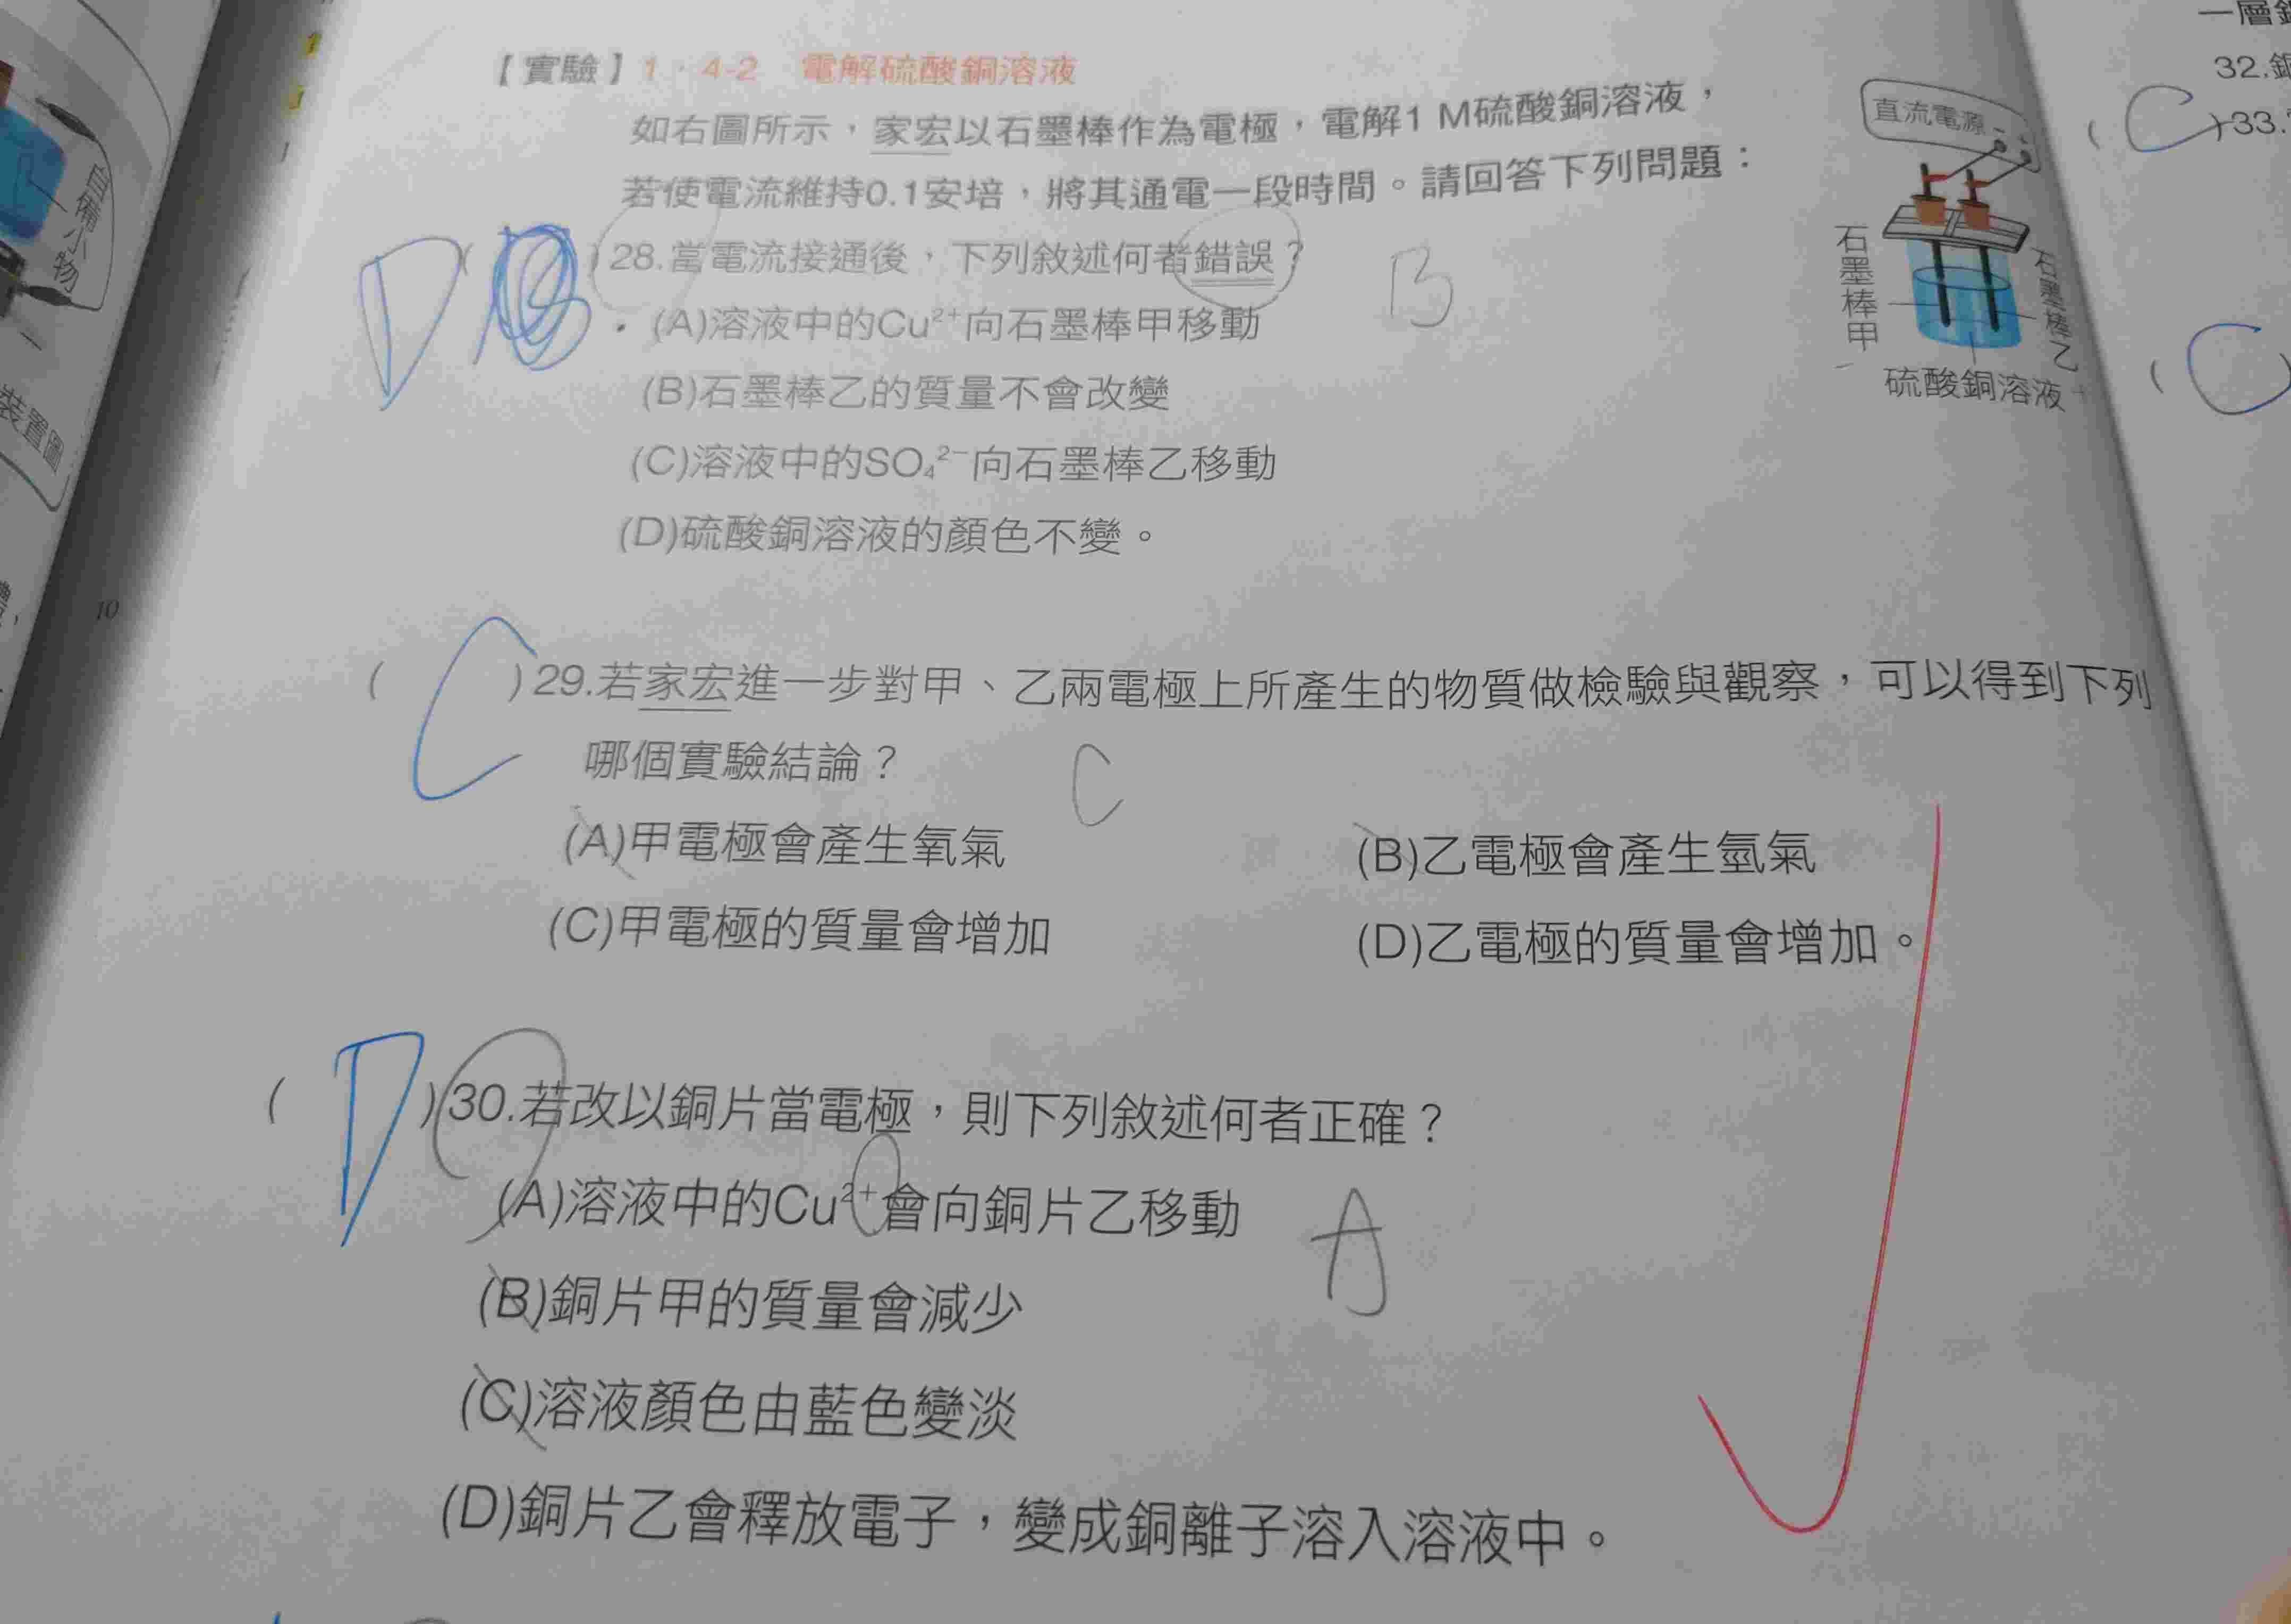 【實驗】1．4-2 電解硫酸銅溶液
如右圖所示，家宏以石墨棒作為電極，電解1 M硫酸銅溶液，
若使電流維持0.1安培，將其通電一段時間。請回答下列問題：
D ( )28.當電流接通後，下列敘述何者錯誤？ B
(A)溶液中的Cu²⁺向石墨棒甲移動
(B)石墨棒乙的質量不會改變
(C)溶液中的SO₄²⁻向石墨棒乙移動
(D)硫酸銅溶液的顏色不變。
直流電源
石墨棒甲
石墨棒乙
硫酸銅溶液
( C )29.若家宏進一步對甲、乙兩電極上所產生的物質做檢驗與觀察，可以得到下列
哪個實驗結論？ C
(A)甲電極會產生氧氣 (B)乙電極會產生氫氣
(C)甲電極的質量會增加 (D)乙電極的質量會增加。
( D )30.若改以銅片當電極，則下列敘述何者正確？
(A)溶液中的Cu²⁺會向銅片乙移動 A
(B)銅片甲的質量會減少
(C)溶液顏色由藍色變淡
(D)銅片乙會釋放電子，變成銅離子溶入溶液中。
自備小物
裝置圖
10
一層
32.
( C )33.
( C )